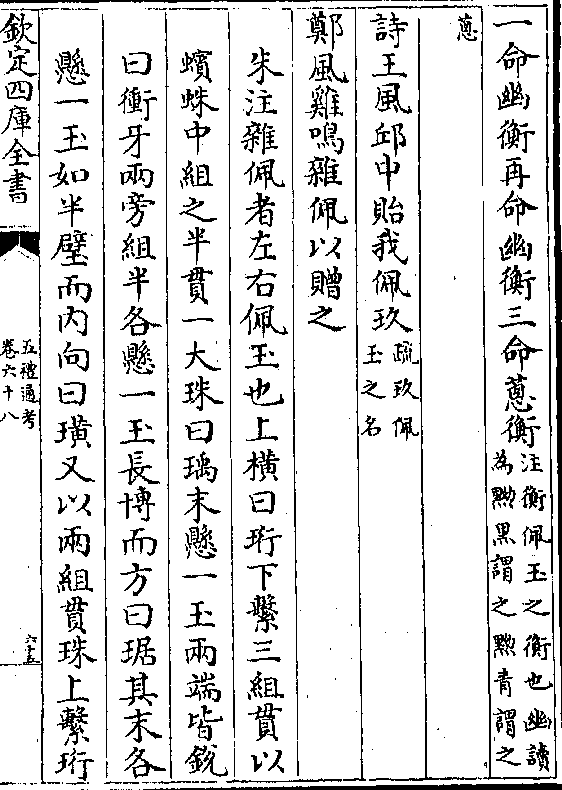 一命幽衡再命幽衡三命蔥衡注衡佩玉之衡也幽讀
為黝黑謂之黝青謂之
蔥
詩王風邱中貽我佩玖疏玖佩
玉之名
鄭風雞鳴雜佩以贈之
朱注雜佩者左右佩玉也上橫曰珩下繫三組貫以
蠙蛛中組之半貫一大珠曰瑀末懸一玉兩端皆銳
曰衝牙兩旁組半各懸一玉長博而方曰琚其末各
懸一玉如半璧而內向曰璜又以兩組貫珠上繫珩
欽定四庫全書
五禮通考
卷六十八
六十五